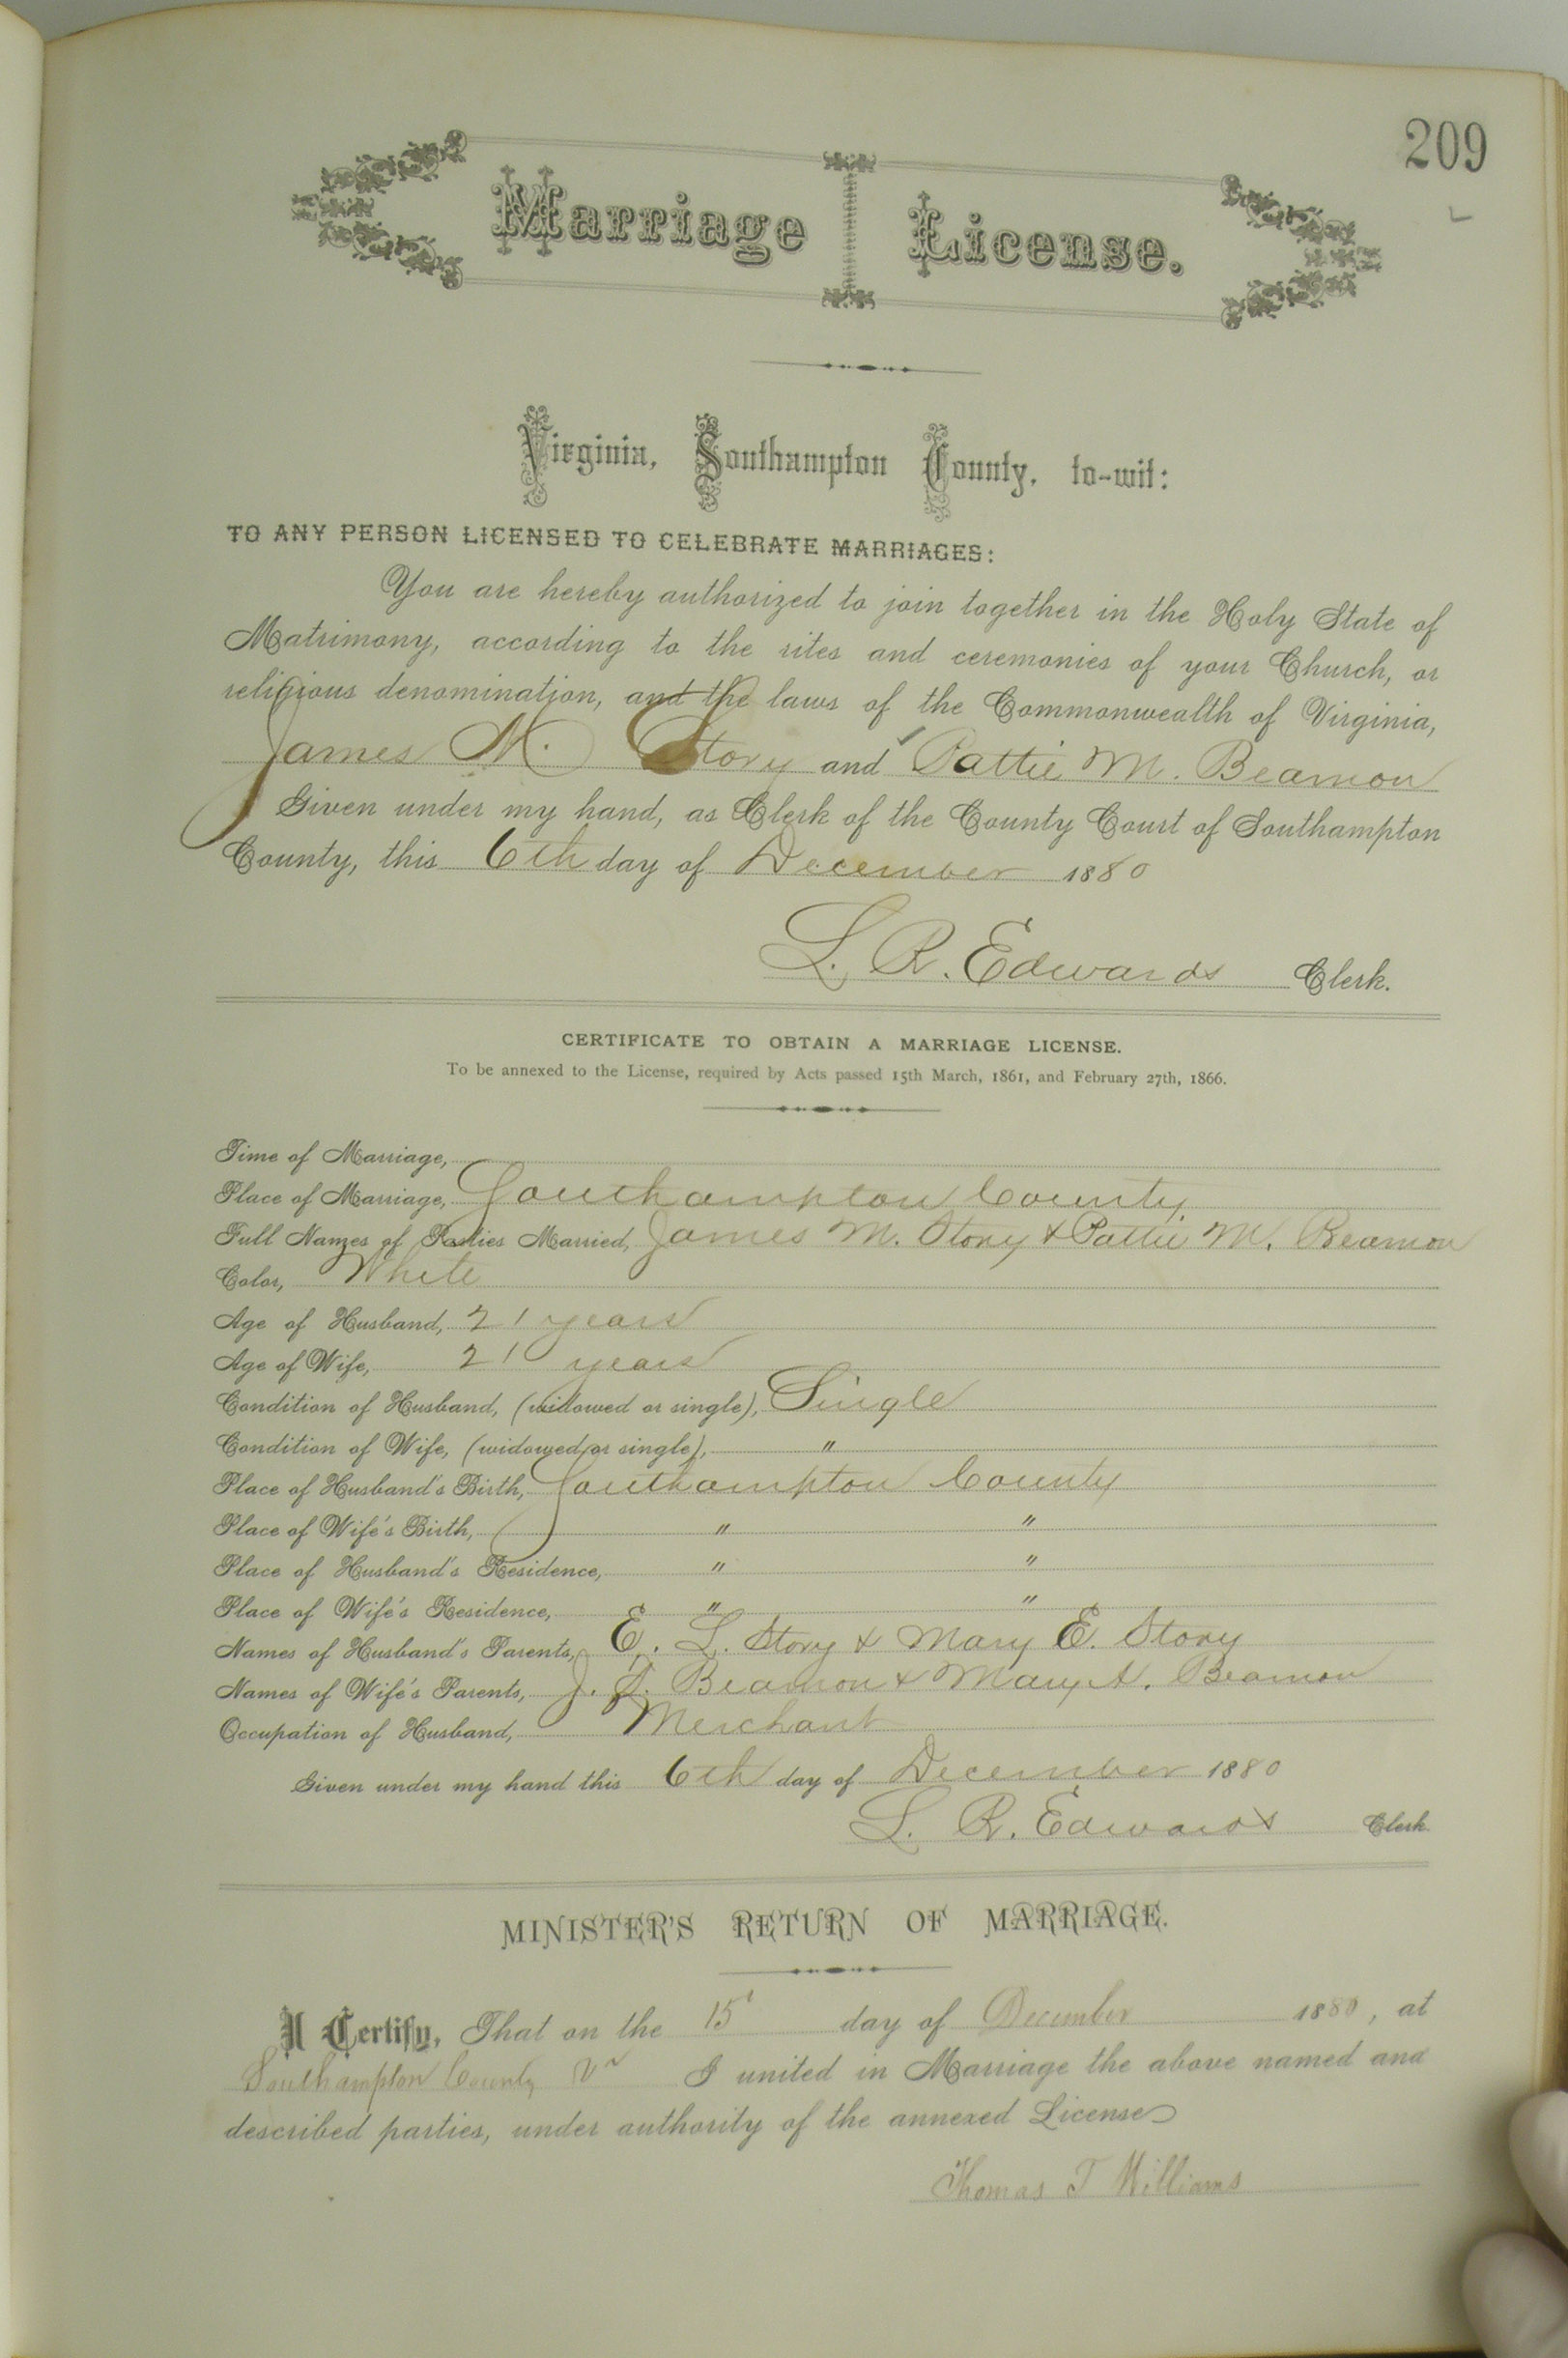 209
Marriage License.
Virginia, Southampton County, to-wit:
TO ANY PERSON LICENSED TO CELEBRATE MARRIAGES:
You are hereby authorized to join together in the Holy State of
Matrimony, according to the rites and ceremonies of your Church, or
religious denomination, and the laws of the Commonwealth of Virginia,
James M. Story and Pattie M. Beamon
Given under my hand, as Clerk of the County Court of Southampton
County, this 6th day of December 1880
L. R. Edwards Clerk.
CERTIFICATE TO OBTAIN A MARRIAGE LICENSE.
To be annexed to the License, required by Acts passed 15th March, 1861, and February 27th, 1866.
Time of Marriage,
Place of Marriage, Southampton County
Full Names of Parties Married, James M. Story & Pattie M. Beamon
Color, White
Age of Husband, 21 years
Age of Wife, 21 years
Condition of Husband, (widowed or single), Single
Condition of Wife, (widowed or single), "
Place of Husband's Birth, Southampton County
Place of Wife's Birth, " "
Place of Husband's Residence, " "
Place of Wife's Residence, " "
Names of Husband's Parents, E. L. Story & Mary E. Story
Names of Wife's Parents, J. J. Beamon & Mary A. Beamon
Occupation of Husband, Merchant
Given under my hand this 6th day of December 1880
L. R. Edwards Clerk
MINISTER'S RETURN OF MARRIAGE.
I Certify, That on the 15 day of December 1880, at
Southampton County Va I united in Marriage the above named and
described parties, under authority of the annexed License
Thomas T Williams